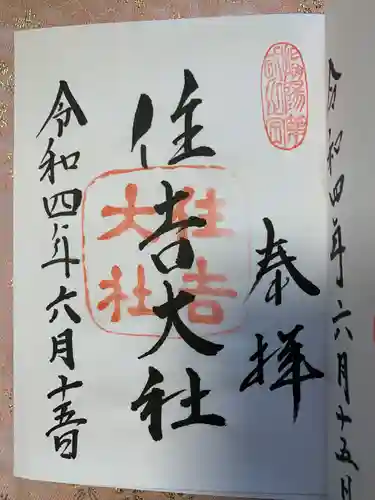 奉拝
住吉大社
令和四年六月十五日
住吉
大社
令和四年六月十五日